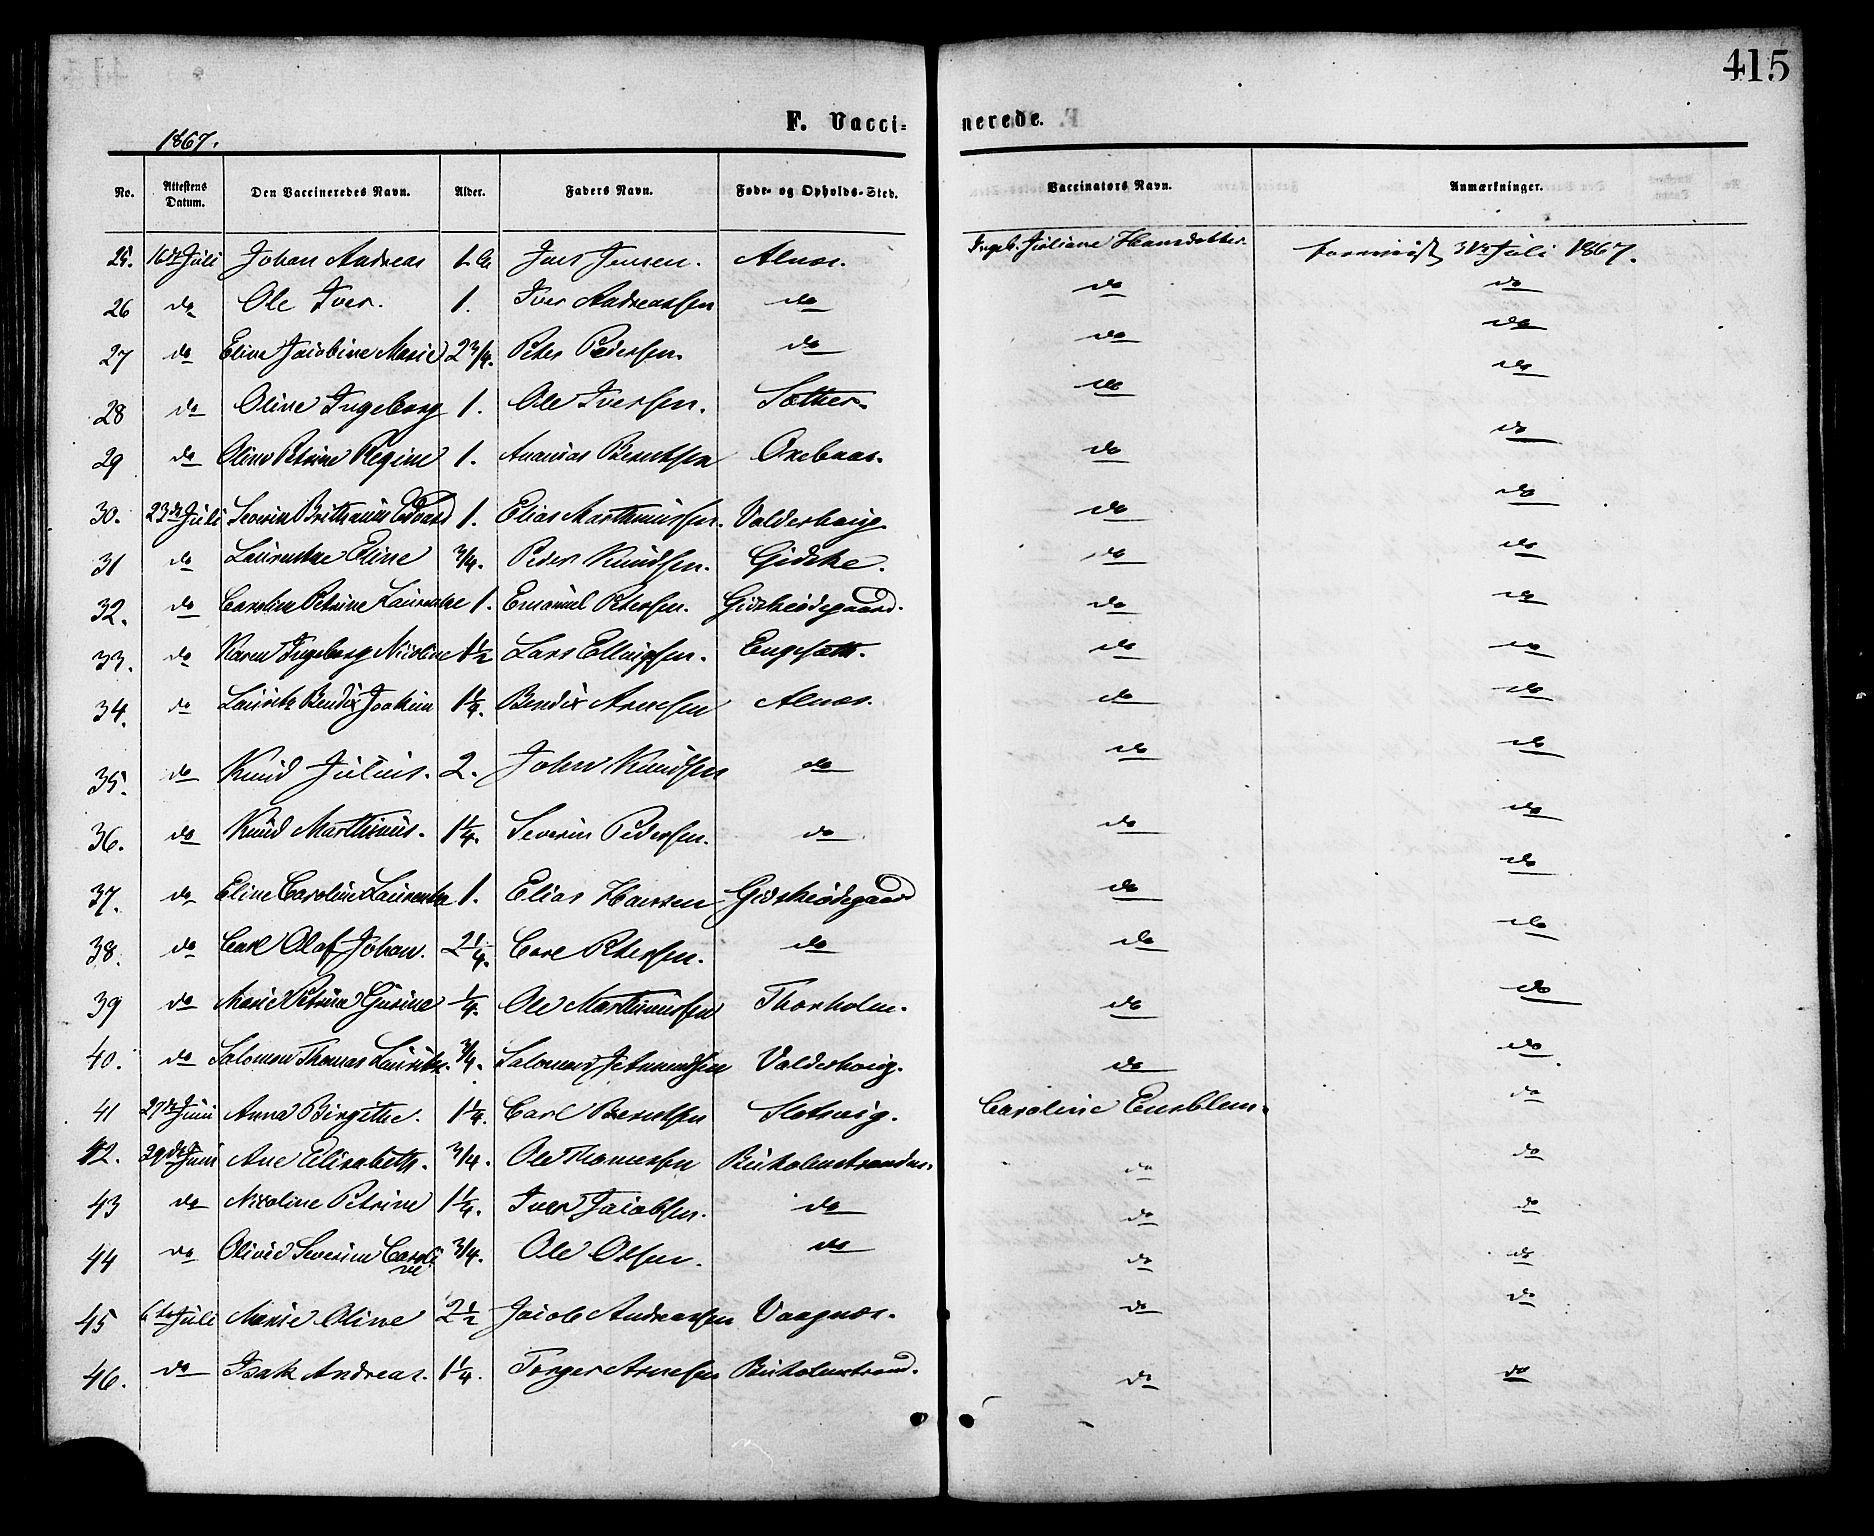 415
F. Vacci= nerede.
1867.
No. Attestens Datum. Den Vaccineredes Navn. Alder. Faders Navn. Føde- og Opholds-Sted. Vaccinators Navn. Anmærkninger.
25. 16de Juli Johan Andreas Jens Jensen. Alnæs. Ingeb. Juliane Hansdatter 31te Juli 1867.
26 do Ole Iver. 1. Iver Andreassen do do do
27 do Eline Jacobine Marie 2 3/4. Peter Pedersen. do do do
28 do Oline Ingeborg 1. Ole Iversen. Sæther. do do
29 do Oline Petrine Regine 1. Ananias Berntsen Oxebaas. do do
30. 23de Juli Severin Edvard 1. Elias Marthinussen. Valderhoug. do do
31 do Laurentze Eline 3/4. Peder Knudsen. Gidske. do do
32. do Caroline Petrine Laurentze 1. Emanuel Petersen. Gidskeødegaard. do do
33. do Karen Ingeborg Nicoline 1 1/2 Lars Ellingsen. Engesæth. do do
34. do Lauritz Bendix Joakim 1 1/4. Bendix Arnesen Alnæs. do do
35. do Knud Julius. 2. John Knudsen do do do
36. do Knud Marthinus. 1 1/4. Severin Pedersen. do do do
37. do Eline Caroline Laurentze 1. Elias Hansen Gidskeødegaard do do
38. do Carl Olaf Johan. 2 1/4. Carl Petersen. do do do
39 do Marie Petrine Gurine 1/4. Ole Marthinussen Thorholm. do do
40. do Salomon Thomas Lauritz. 3/4. Salomon Valderhoug. do do
41 27de Juni Anna Birgitte. 1 1/4. Carl Berntsen Slotvig. Caroline Emblem. do
42. 29de Juni Ane Elisabeth. 3/4. Ole Thomassen do do
43 do Nicoline Petrine 1 1/4. Iver Jacobsen. do do do
44 do Olivie Severine Caroli
ne 3/4. Ole Olsen. do do do
45 6te Juli Marie Oline 2 1/2 Jacob Andreassen Vaagnæs. do do
46. do Isak Andreas. 1 1/4. Torger Arnesen do do